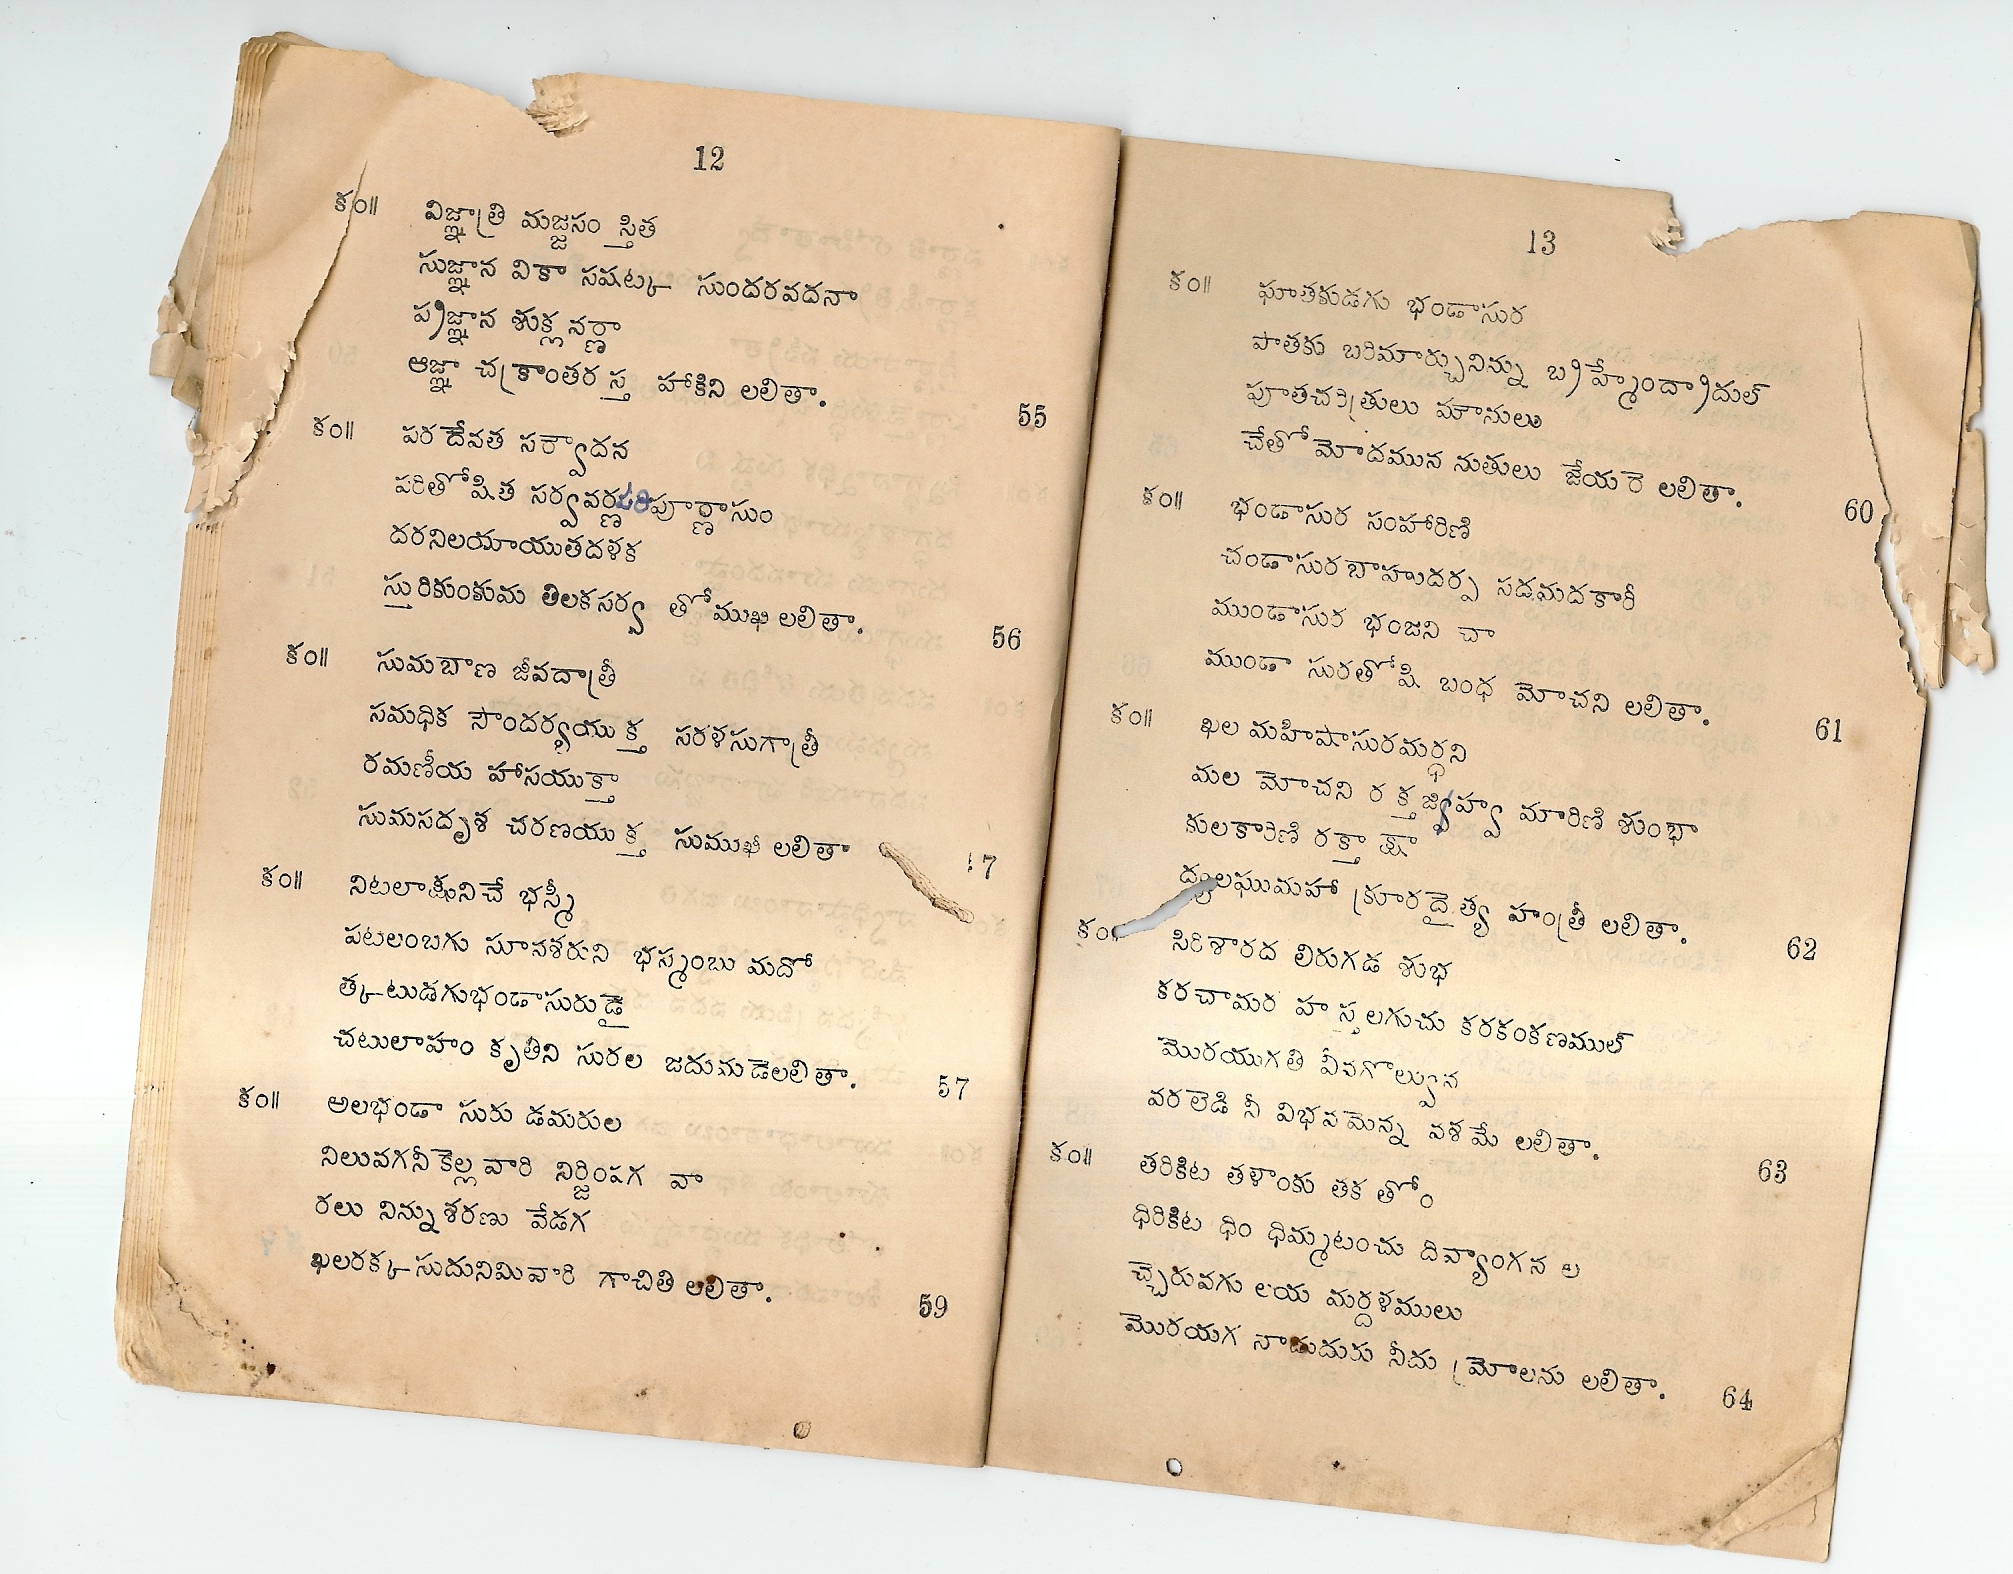 12
కం॥ విజ్ఞాత్రి మజ్జసం స్తిత
సుజ్ఞాన వికా సషట్క సుందరవదనా
ప్రజ్ఞాన శుక్ల వర్ణా
ఆజ్ఞా చక్రాంతర స్త హాకిని లలితా. 55
కం॥ పర దేవత సర్వాదన
పరితోషిత సర్వవర్ణపరిపూర్ణాసుం
దరనిలయాయుతదళక
స్తురికుంకుమ తిలకసర్వ తోముఖి లలితా. 56
కం॥ సుమబాణ జీవదాత్రీ
సమధిక సౌందర్యయు క్త సరళసుగాత్రీ
రమణీయ హాసయుక్తా
సుమసదృశ చరణయు క్త సుముఖీ లలితా 7
కం॥ నిటలాక్షునిచే భస్మీ
పటలంబగు సూనశరుని భస్మంబు మదో
త్కటుడగుభండాసురుడై
చటులాహం కృతిని సురల జదుమడెలలితా. 57
కం॥ అలభండా సురు డమరుల
నిలువగనీకెల్ల వారి నిర్జింపగ వా
రలు నిన్నుశరణు వేడగ
ఖలరక్కసుదునిమివారి గాచితి లలితా. 59
13
కం॥ ఘాతకుడగు భండాసుర
పాతకు బరిమార్చునిన్ను బ్రహ్మేంద్రాదుల్
పూతచరిత్రులు మౌనులు
చేతో మోదమున నుతులు జేయరె లలితా. 60
కం॥ భండాసుర సంహారిణి
చండాసురబాహుదర్ప సదమదకారీ
ముండాసుర భంజని చా
ముండా సురతోషి బంధ మోచని లలితా. 61
కం॥ ఖల మహిషాసురమర్ధని
మల మోచని ర క్త జిహ్వ మారిణి శుంభా
కులకారిణి రక్తా క్షా
లఘుమహా క్రూరదైత్య హంత్రీ లలితా. 62
కం॥ సిరిశారద లిరుగడ శుభ
కరచామర హ స్త లగుచు కరకంకణముల్
మొరయుగతి వీవగొల్వున
వరలెడి నీ విభవమెన్న వశమే లలితా. 63
కం॥ తరికిట తళాంకు తక తోం
ధిరికిట ధిం ధిమ్మటంచు దివ్యాంగన ల
చ్చెరువగు లయ మర్దళములు
మొరయగ నాడుదురు నీదు మ్రోలను లలితా. 64